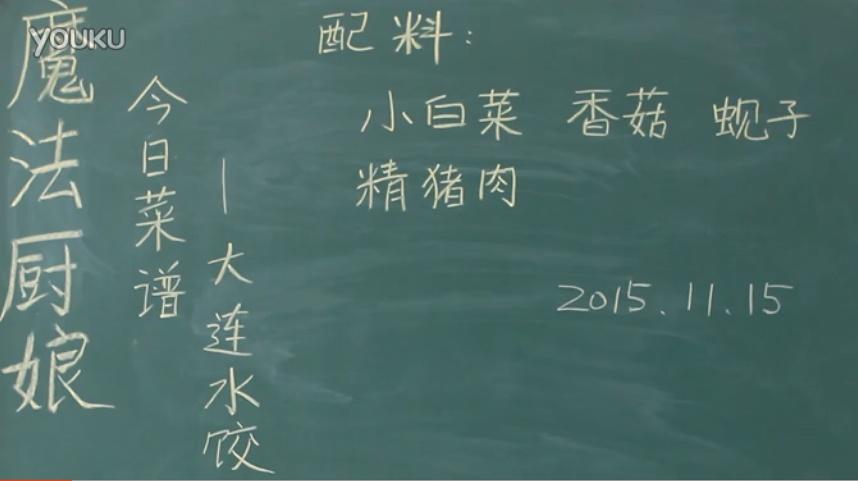 YOUKU
魔法厨娘
今日菜谱
—大连水饺
配料：
小白菜 香菇 蚬子
精猪肉
2015.11.15